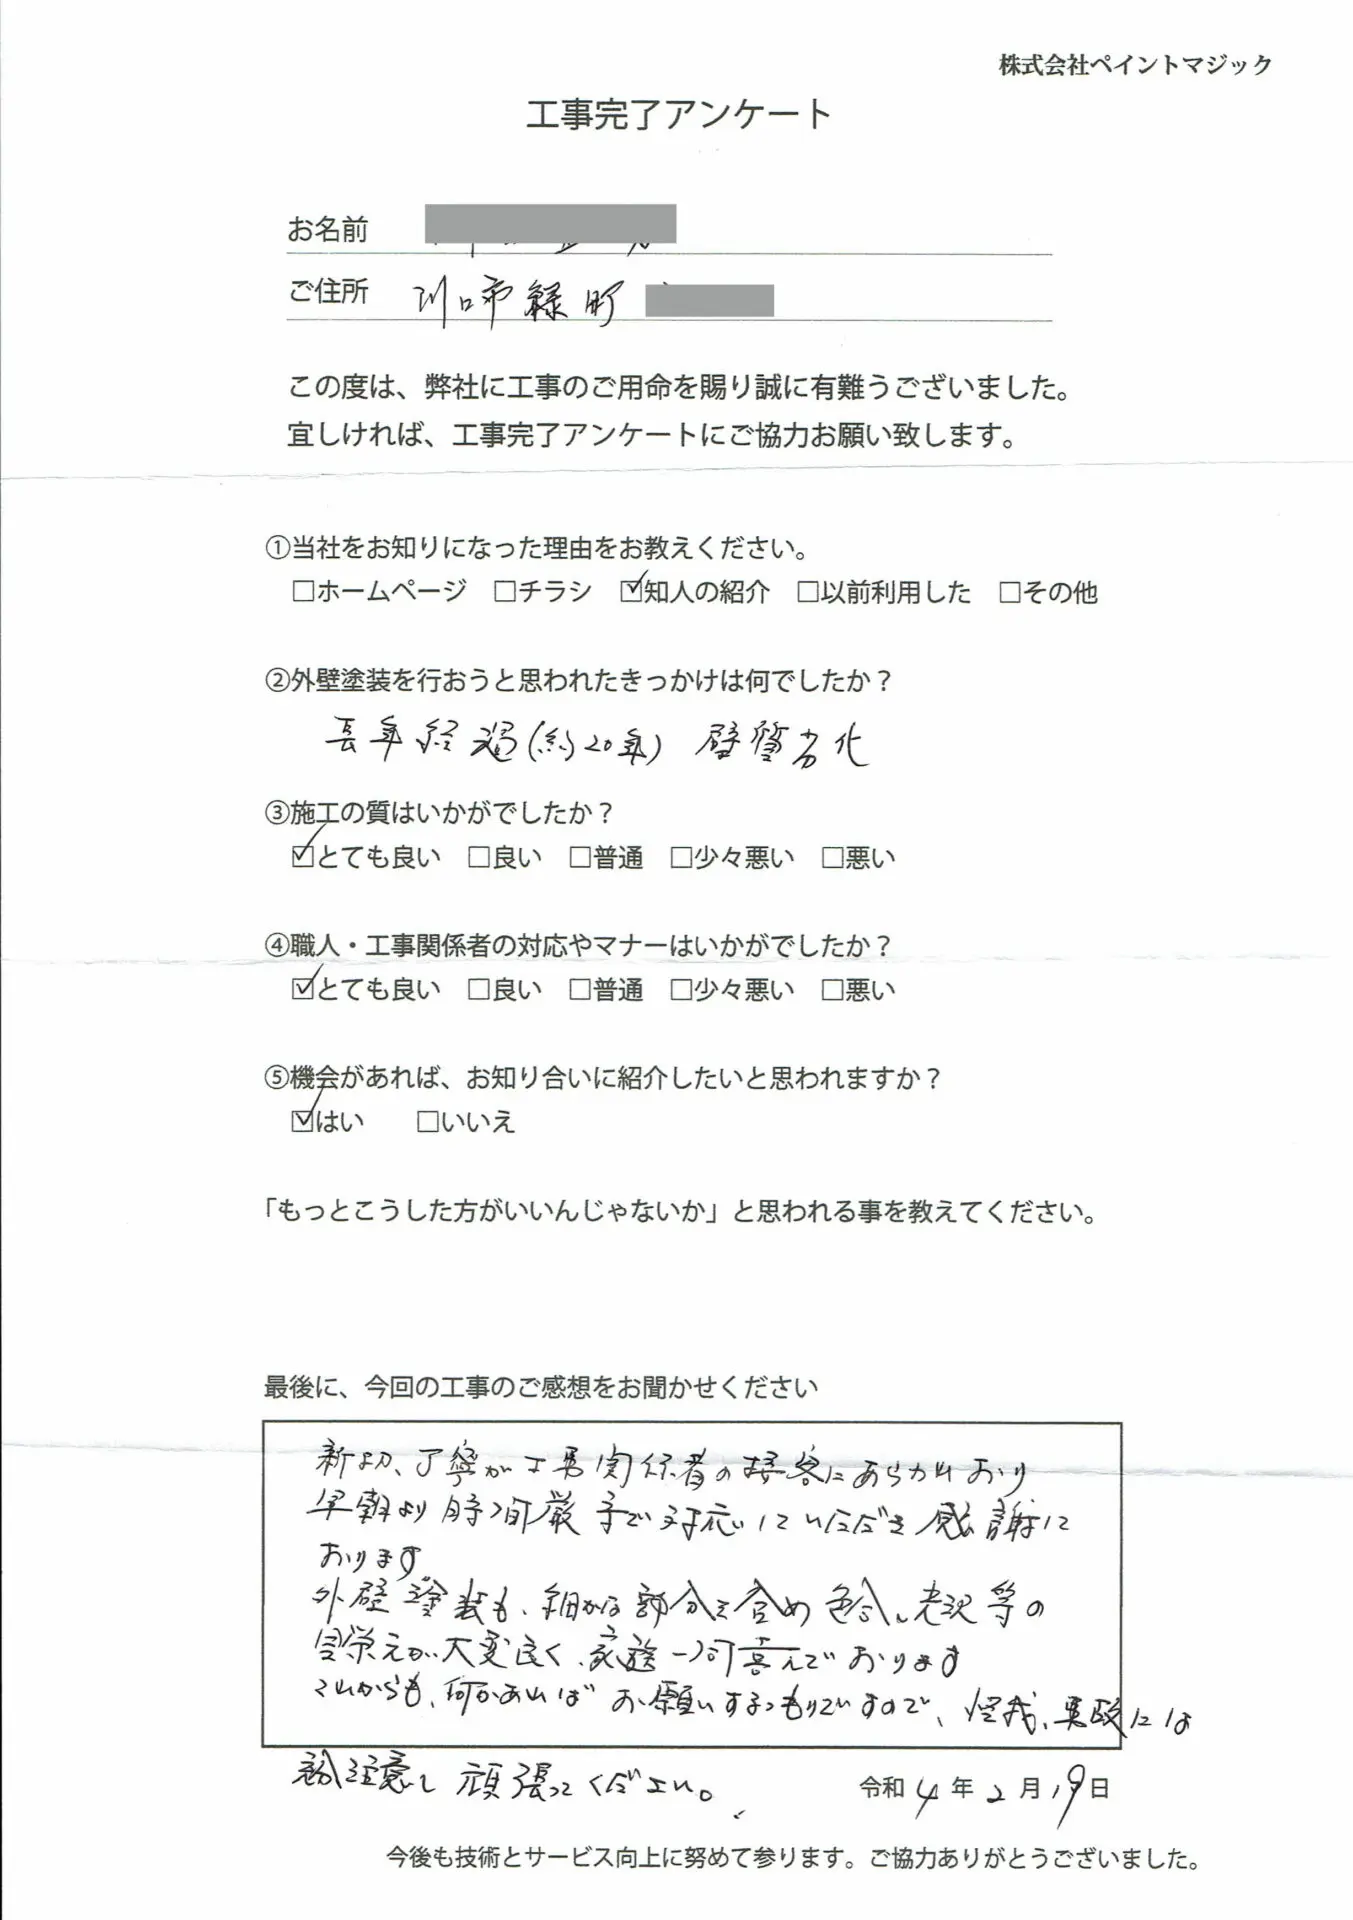 株式会社ペイントマジック
工事完了アンケート
お名前
ご住所 川口市緑町
この度は、弊社に工事のご用命を賜り誠に有難うございました。
宜しければ、工事完了アンケートにご協力お願い致します。
①当社をお知りになった理由をお教えください。
□ホームページ □チラシ ☑知人の紹介 □以前利用した □その他
②外壁塗装を行おうと思われたきっかけは何でしたか？
長年経過(約20年) 壁質劣化
③施工の質はいかがでしたか？
☑とても良い □良い □普通 □少々悪い □悪い
④職人・工事関係者の対応やマナーはいかがでしたか？
☑とても良い □良い □普通 □少々悪い □悪い
⑤機会があれば、お知り合いに紹介したいと思われますか？
☑はい □いいえ
「もっとこうした方がいいんじゃないか」と思われる事を教えてください。
最後に、今回の工事のご感想をお聞かせください
親切、丁寧が工事関係者の接客にあらわれおり
早朝より時間厳守で対応していただき感謝して
おります
外壁塗装も、細かな部分を含め色合い、光沢等の
出栄えが大変良く、家族一同喜んでおります
これからも、何かあればお願いするつもりですので、怪我、事故には
充分注意して頑張ってください。
令和4年2月19日
今後も技術とサービス向上に努めて参ります。ご協力ありがとうございました。